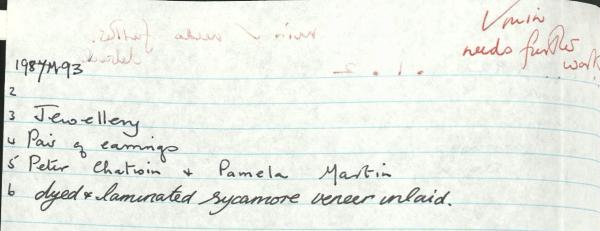 √ min
needs further
work
1987M93
2
3 Jewellery
4 Pair of earrings
5 Peter Chatwin + Pamela Martin
6 dyed & laminated sycamore veneer inlaid.